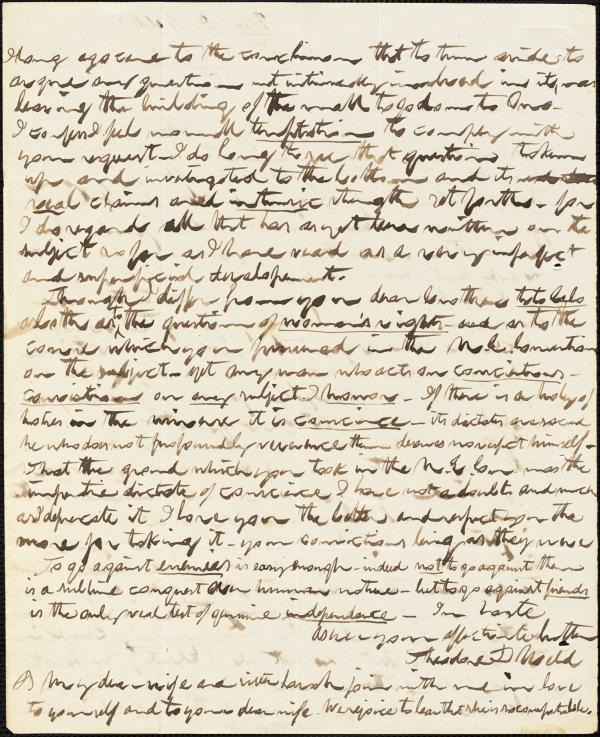 long ago came to the conclusion that to turn aside to
argue any question not intimately involved in it, was
leaving the building of the wall to go down to Ono.
I confess I feel no small temptation to comply with
your request. I do long to see that question taken
up and investigated to the bottom and its
real claims and intrinsic strength set forth - for
I do regard all that has as yet been written on the
subject so far as I have read as a very imperfect
and superficial developement.
Though I differ from you dear brother toto coelo
both as to the question of woman's rights and as to the
course which you pursued in the N.E. Convention
on the subject - yet any man who acts on conscientious
conviction on any subject I honor - If there is a holy of
holies in the universe it is conscience - its dictates are sacred
he who does not profoundly reverence them deserves no respect himself -
That the ground which you took in the N.E. Con. was the
imperative dictate of conscience I have not a doubt and much
as I deprecate it I love you the better and respect you the
more for taking it - your convictions being as they were
To go against enemies is easy enough - indeed not to go against them
is a sublime conquest over human nature - but to go against friends
is the only real test of genuine independence - In haste
as ever your affectionate brother
Theodore D Weld
PS My dear wife and sister Sarah join with me in love
to yourself and to your dear wife. We rejoice to hear that she is so comfortable.